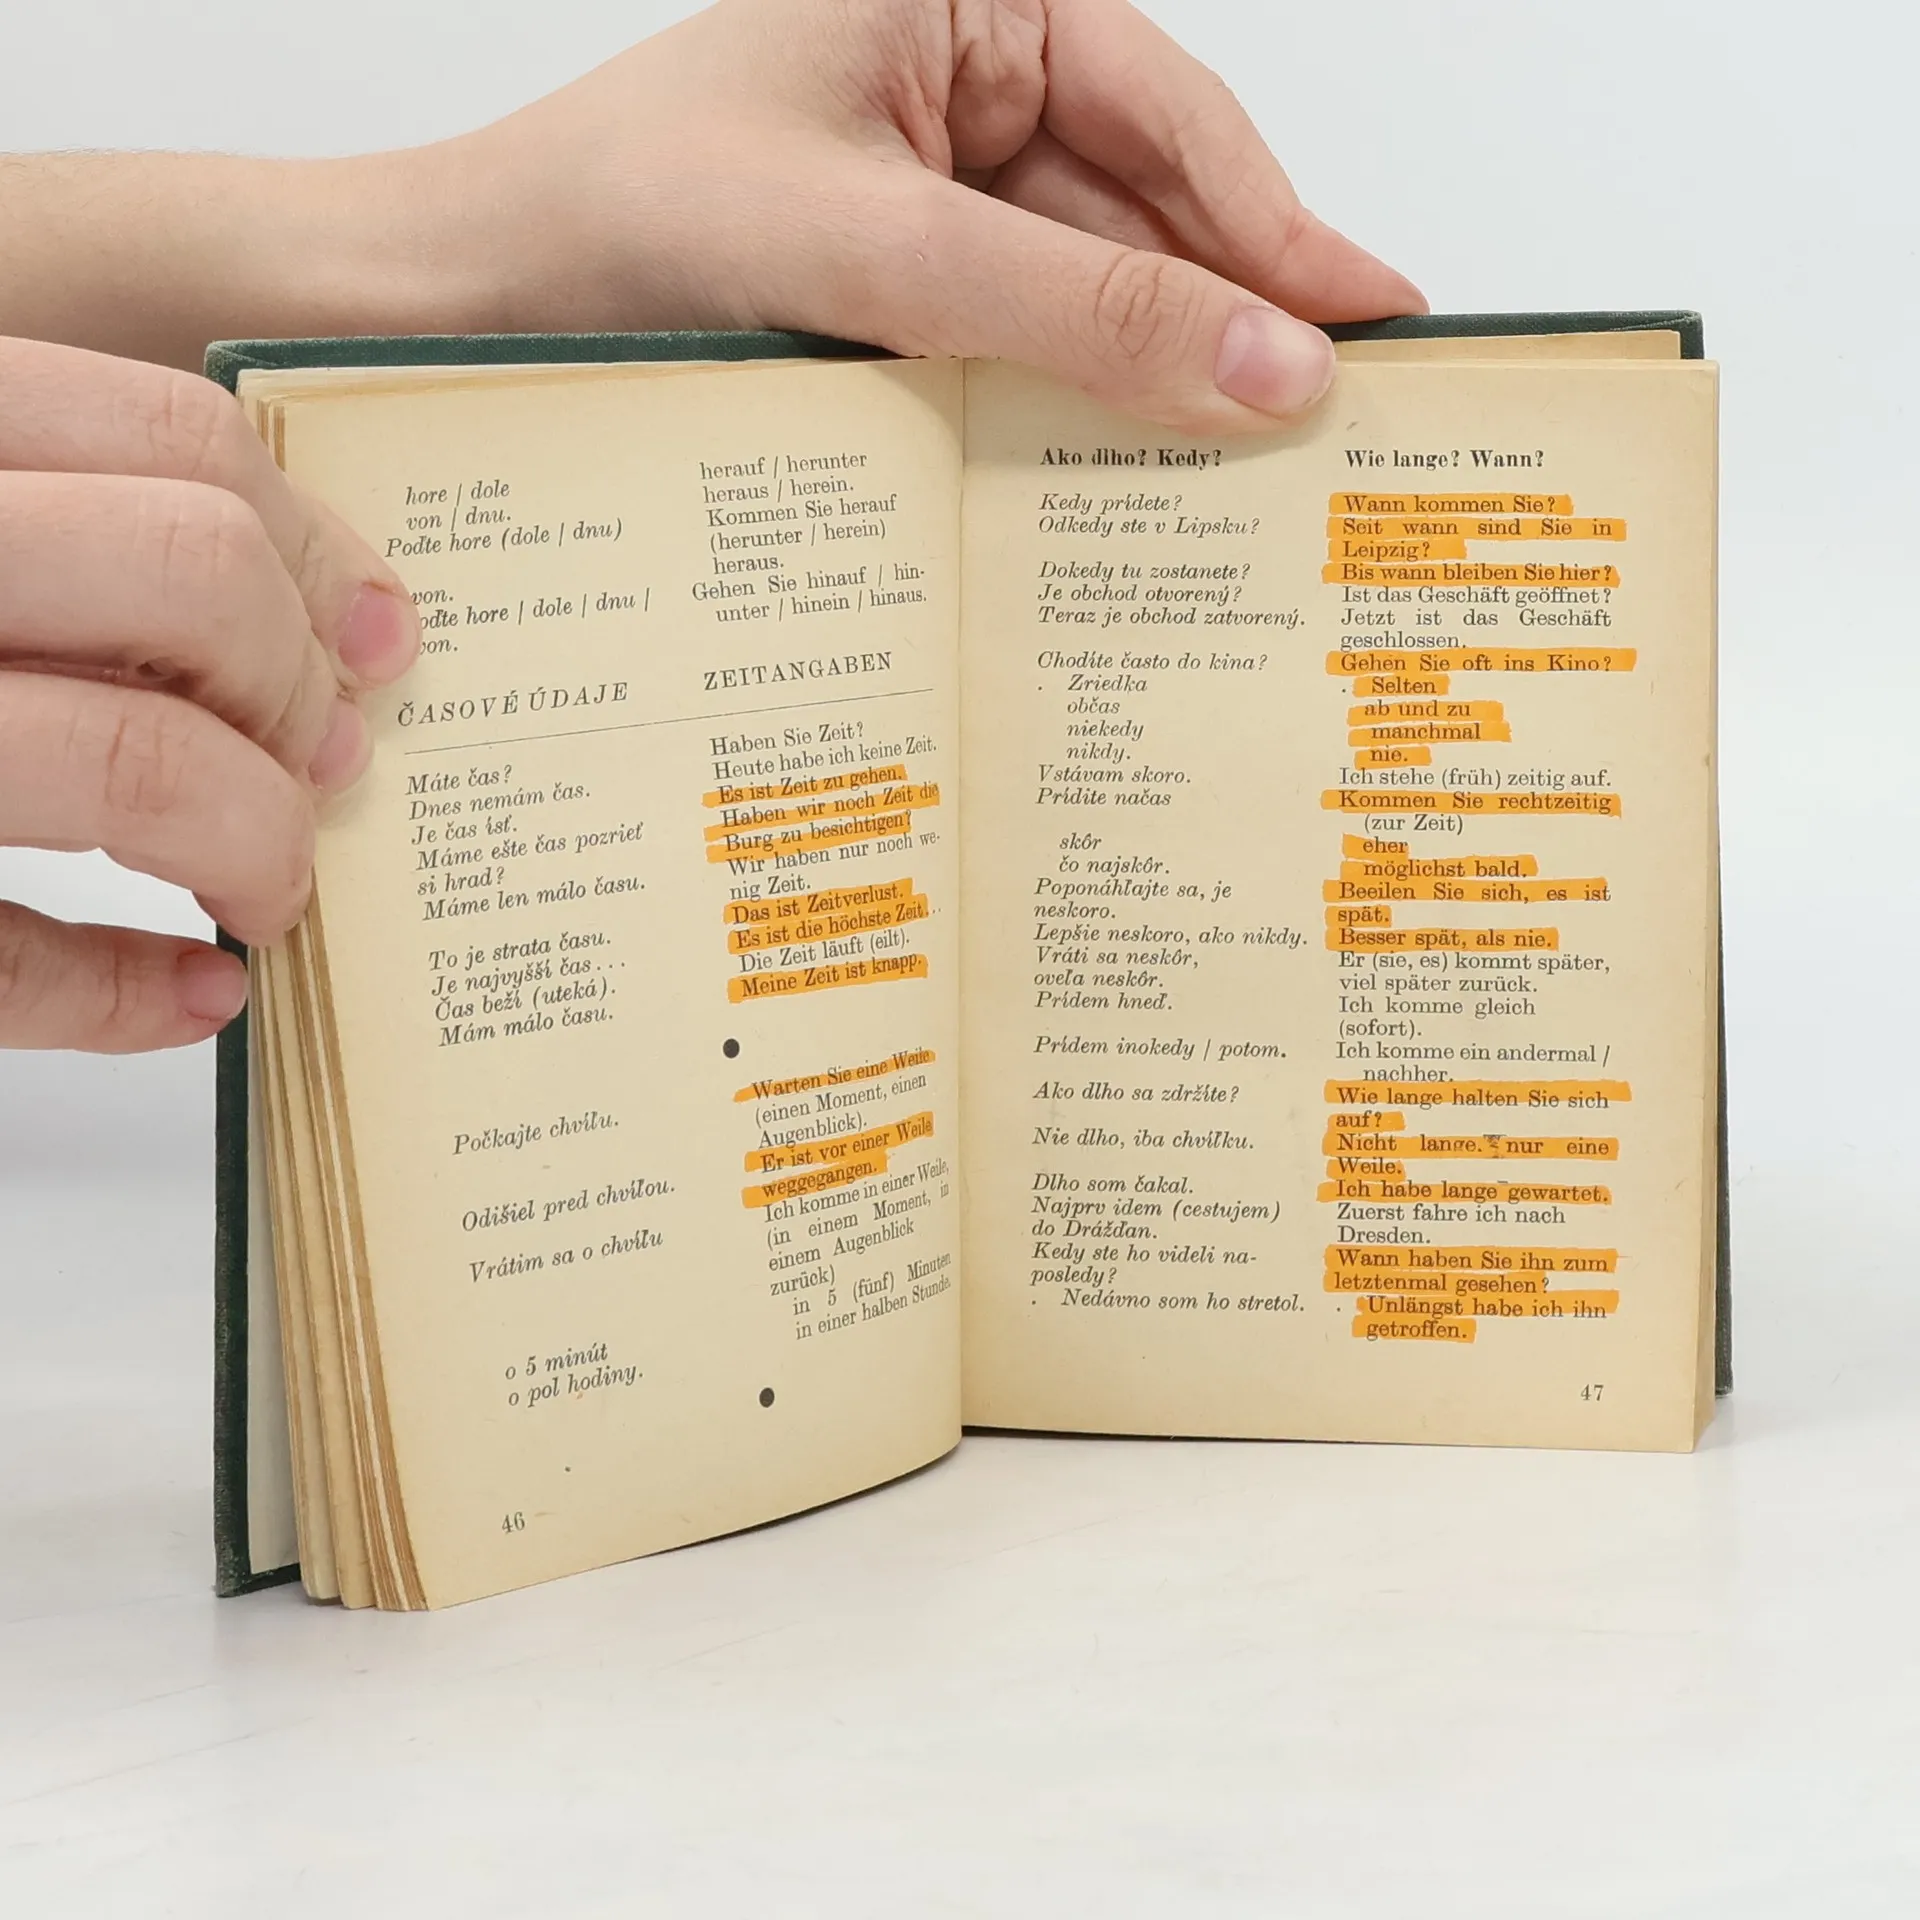 hore / dole
von / dnu.
Poďte hore (dole / dnu)
von.
hore / dole / dnu /
ČASOVÉ ÚDAJE
Máte čas?
Dnes nemám čas.
Je čas ísť.
Máme ešte čas pozrieť
si hrad?
Máme len málo času.
To je strata času.
Je najvyšší čas...
Čas beží (uteká).
Mám málo času.
Počkajte chvíľu.
Odišiel pred chvíľou.
Vrátim sa o chvíľu
o 5 minút
o pol hodiny.
46
herauf / herunter
heraus / herein.
Kommen Sie herauf
(herunter / herein)
heraus.
Gehen Sie hinauf / hin-
unter / hinein / hinaus.
ZEITANGABEN
Haben Sie Zeit?
Heute habe ich keine Zeit.
Es ist Zeit zu gehen.
Haben wir noch Zeit die
Burg zu besichtigen?
Wir haben nur noch we-
nig Zeit.
Das ist Zeitverlust.
Es ist die höchste Zeit...
Die Zeit läuft (eilt).
Meine Zeit ist knapp.
Warten Sie eine Weile
(einen Moment, einen
Augenblick).
Er ist vor einer Weile
weggegangen.
Ich komme in einer Weile,
(in einem Moment, in
einem Augenblick
zurück)
in 5 (fünf) Minuten
in einer halben Stunde.
Ako dlho? Kedy?
Kedy prídete?
Odkedy ste v Lipsku?
Dokedy tu zostanete?
Je obchod otvorený?
Teraz je obchod zatvorený.
Chodíte často do kina?
. Zriedka
občas
niekedy
nikdy.
Vstávam skoro.
Prídite načas
skôr
čo najskôr.
Poponáhľajte sa, je
neskoro.
Lepšie neskoro, ako nikdy.
Vráti sa neskôr,
oveľa neskôr.
Prídem hneď.
Prídem inokedy / potom.
Ako dlho sa zdržíte?
Nie dlho, iba chvíľku.
Dlho som čakal.
Najprv idem (cestujem)
do Drážďan.
Kedy ste ho videli na-
posledy?
. Nedávno som ho stretol.
Wie lange? Wann?
Wann kommen Sie?
Seit wann sind Sie in
Leipzig?
Bis wann bleiben Sie hier?
Ist das Geschäft geöffnet?
Jetzt ist das Geschäft
geschlossen.
Gehen Sie oft ins Kino?
. Selten
ab und zu
manchmal
nie.
Ich stehe (früh) zeitig auf.
Kommen Sie rechtzeitig
(zur Zeit)
eher
möglichst bald.
Beeilen Sie sich, es ist
spät.
Besser spät, als nie.
Er (sie, es) kommt später,
viel später zurück.
Ich komme gleich
(sofort).
Ich komme ein andermal /
nachher.
Wie lange halten Sie sich
auf?
Nicht lange. nur eine
Weile.
Ich habe lange gewartet.
Zuerst fahre ich nach
Dresden.
Wann haben Sie ihn zum
letztenmal gesehen?
. Unlängst habe ich ihn
getroffen.
47